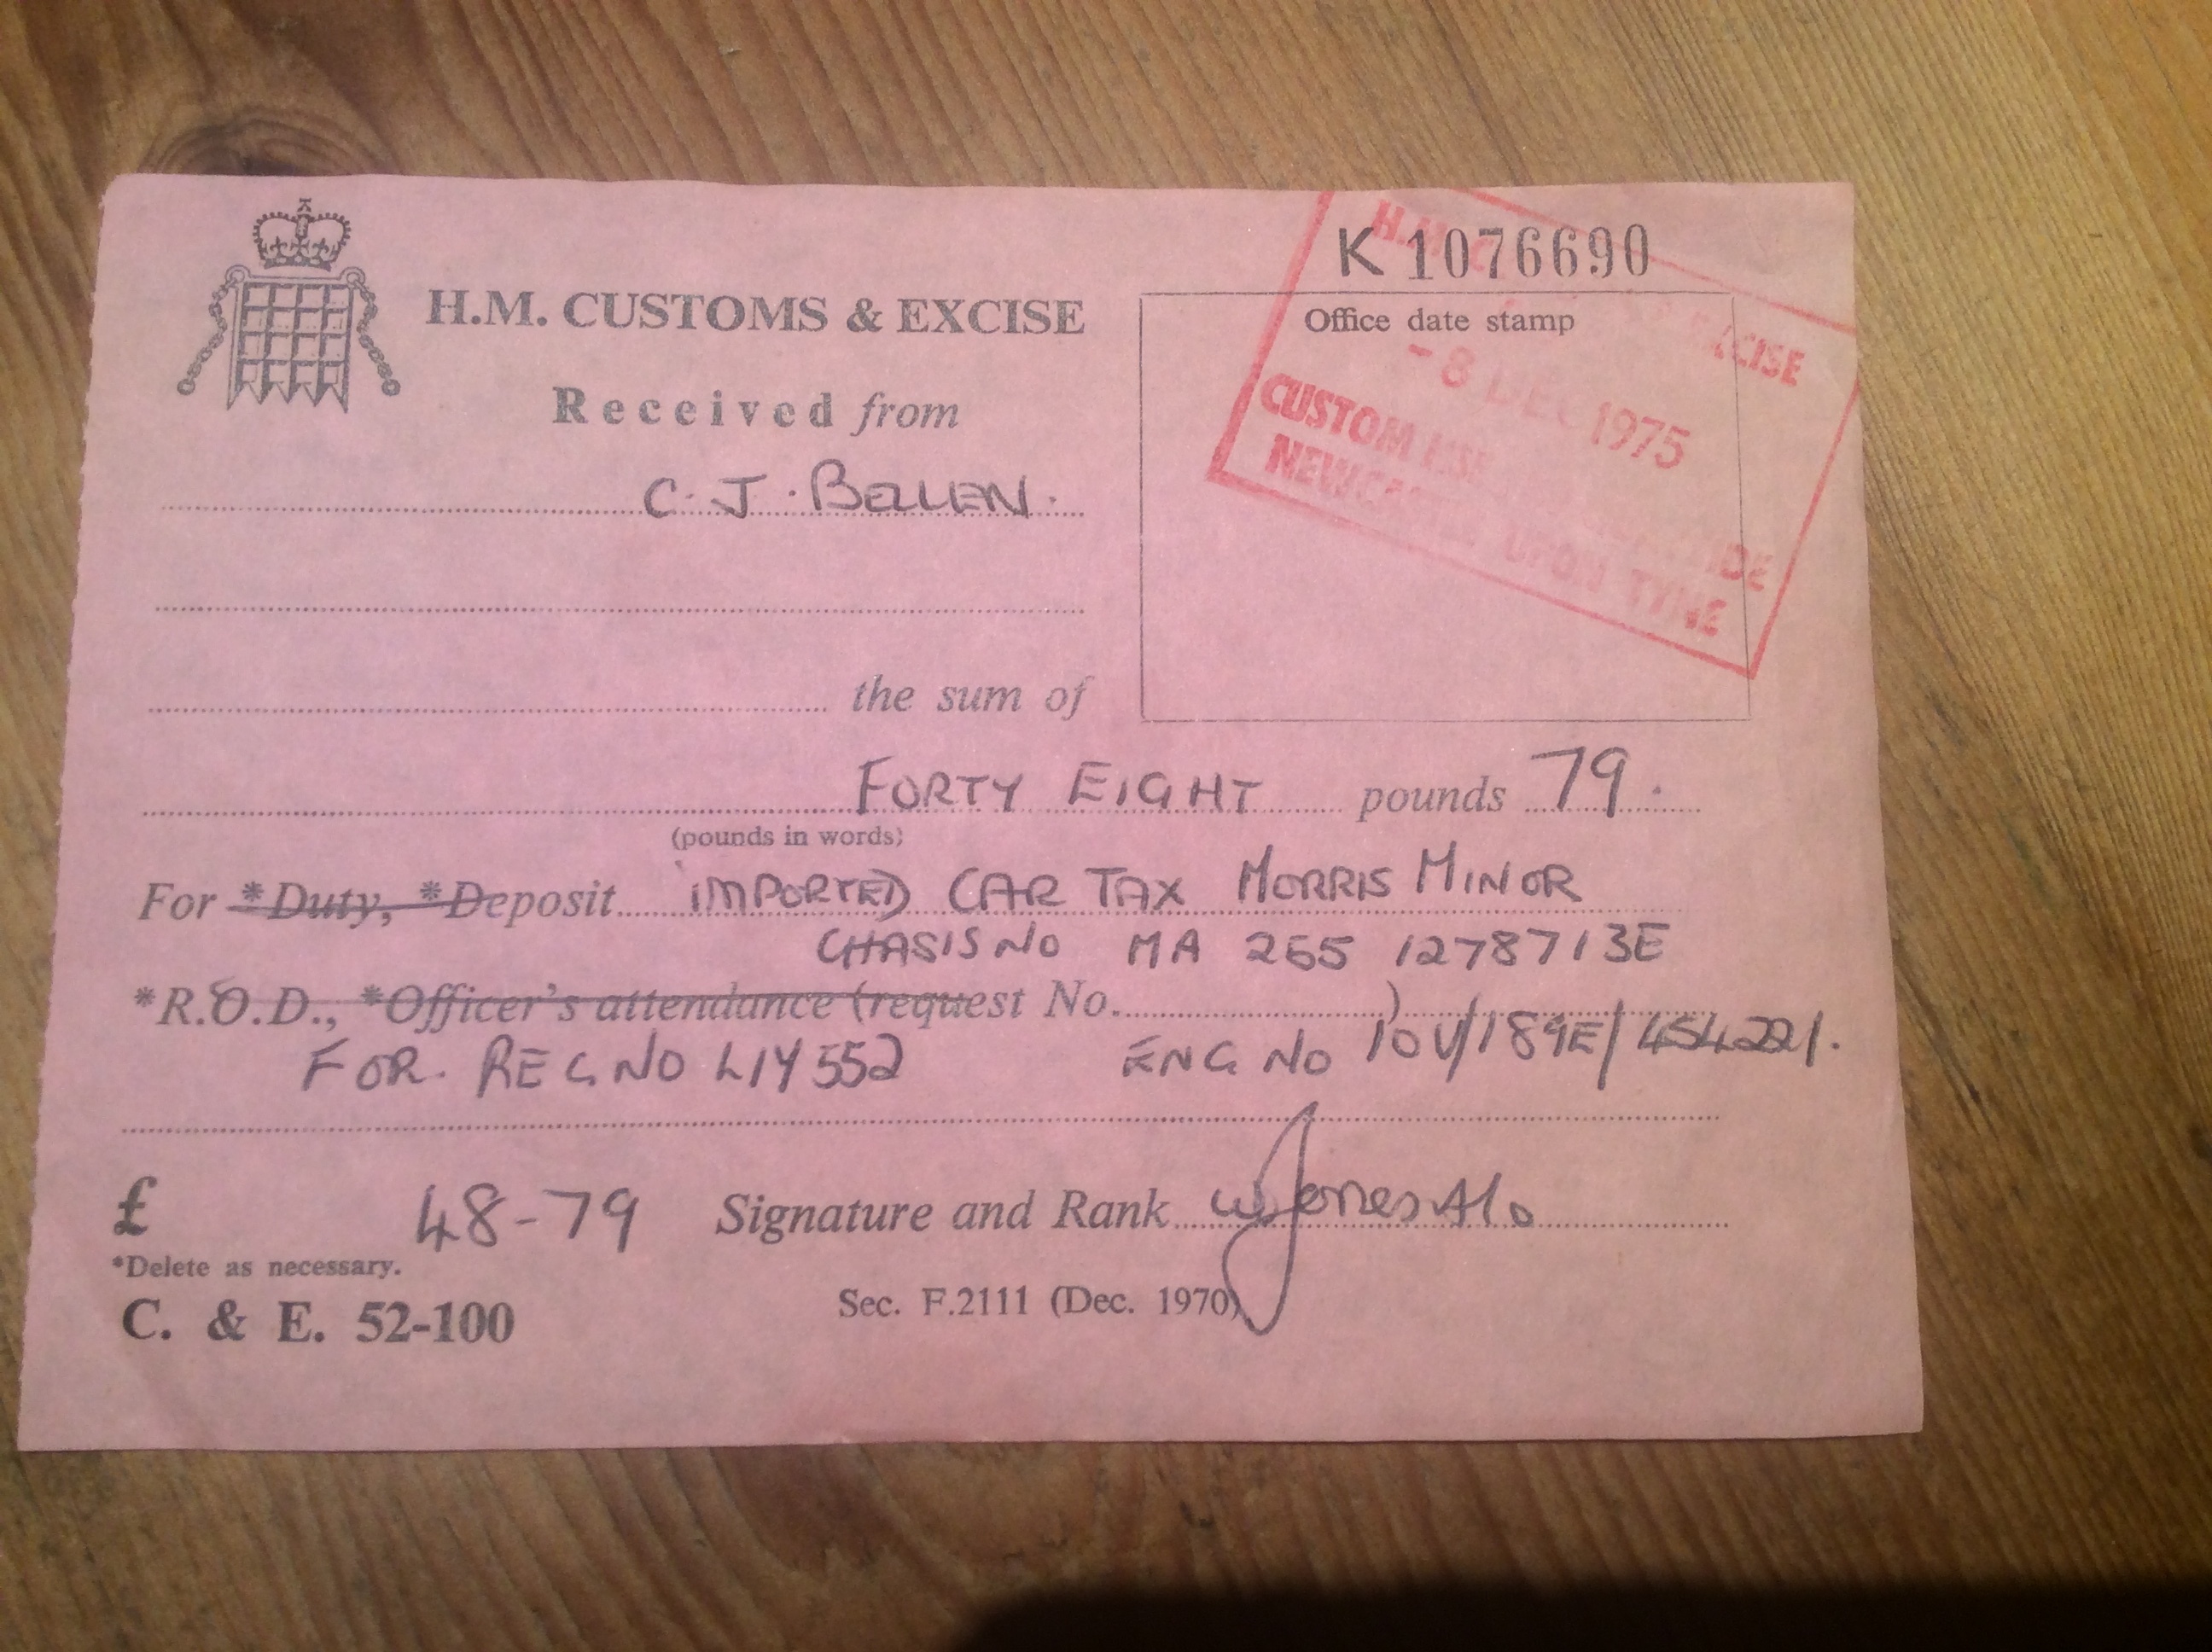 K 1076690
H.M. CUSTOMS & EXCISE
Office date stamp
-8 DEC 1975
CUSTOM
NEWCASTLE UPON TYNE
Received from
C. J. BELLEN.
the sum of
FORTY EIGHT pounds 79.
(pounds in words)
For *Duty, *Deposit IMPORTED CAR TAX MORRIS MINOR
CHASIS NO MA 265 1278713E
*R.O.D., *Officer's attendance (request No. )
FOR. REG NO LIY 552 ENG NO 10V/189E/454221.
£ 48-79 Signature and Rank W Jones
*Delete as necessary.
C. & E. 52-100 Sec. F.2111 (Dec. 1970)